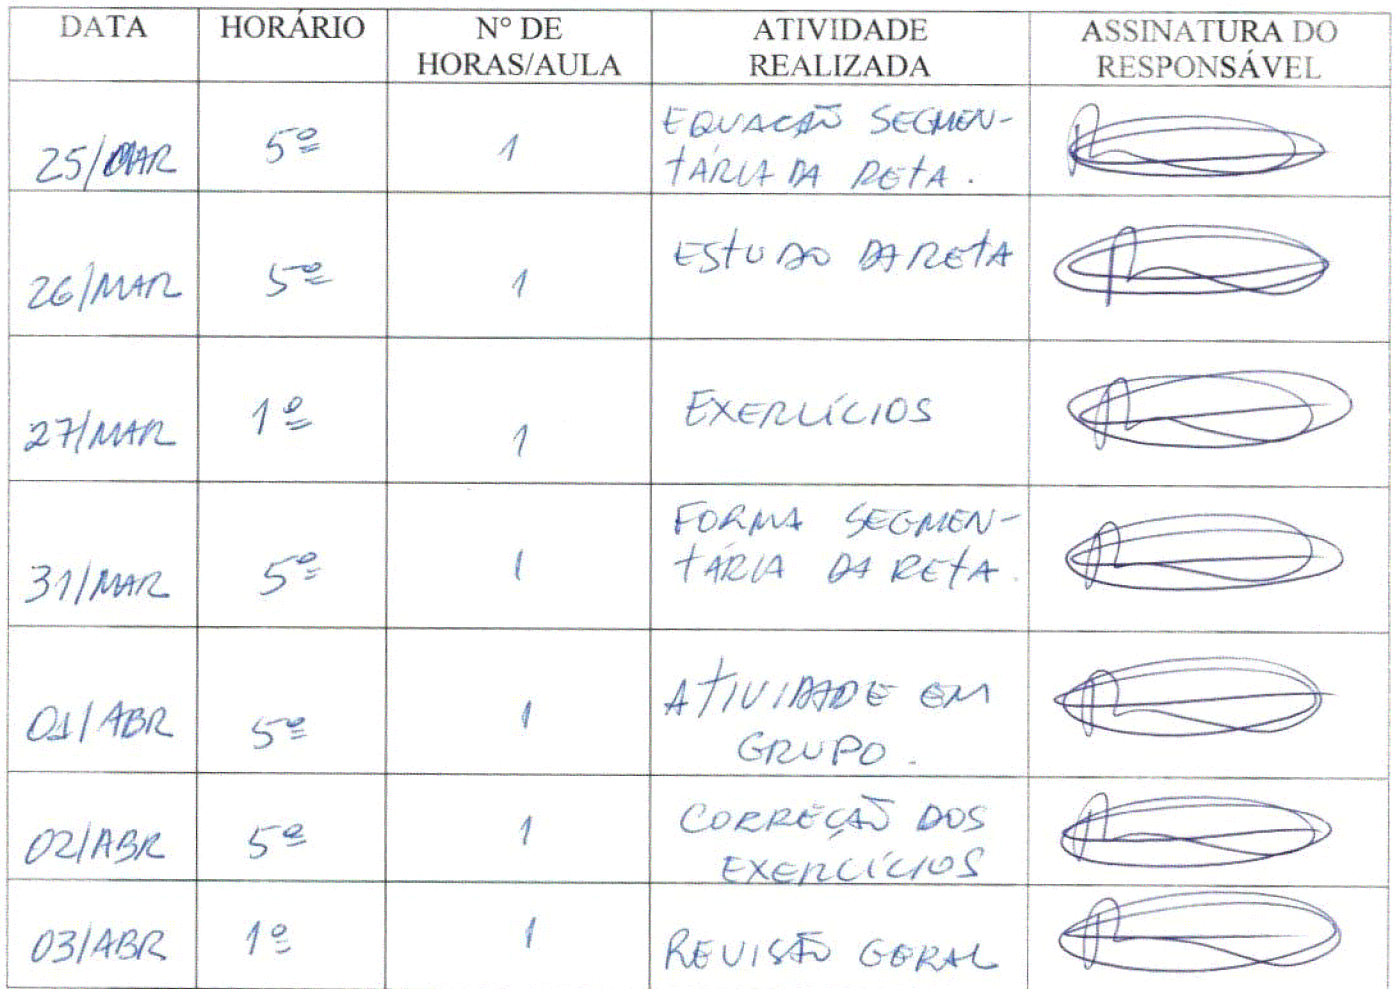 DATA HORÁRIO N° DE HORAS/AULA ATIVIDADE REALIZADA ASSINATURA DO RESPONSÁVEL
25/MAR 5º 1 EQUAÇÃO SEGMEN-
TÁRIA DA RETA.
26/MAR 5º 1 ESTUDO DA RETA
27/MAR 1º 1 EXERCÍCIOS
31/MAR 5º 1 FORMA SEGMEN-
TÁRIA DA RETA.
01/ABR 5º 1 ATIVIDADE EM
GRUPO.
02/ABR 5º 1 CORREÇÃO DOS
EXERCÍCIOS
03/ABR 1º 1 REVISÃO GERAL